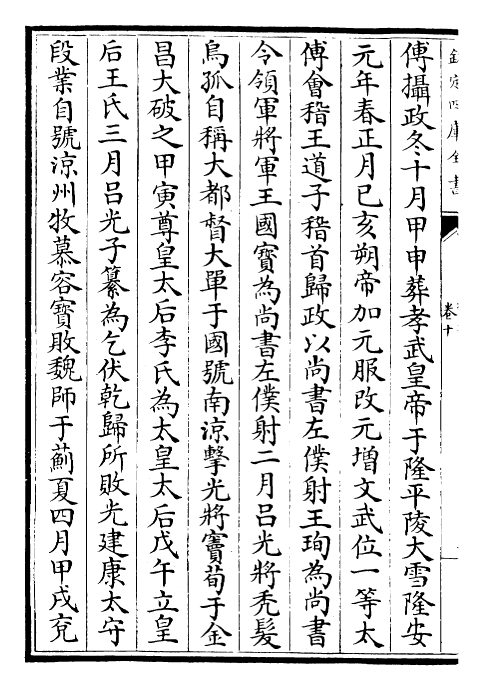 欽定四庫全書
卷十
傅攝政冬十月甲申葬孝武皇帝于隆平陵大雪隆安
元年春正月己亥朔帝加元服改元增文武位一等太
傅會稽王道子稽首歸政以尚書左僕射王珣為尚書
令領軍將軍王國寶為尚書左僕射二月吕光將禿髪
烏孤自稱大都督大單于國號南涼擊光將竇荀于金
昌大破之甲寅尊皇太后李氏為太皇太后戊午立皇
后王氏三月吕光子纂為乞伏乾歸所敗光建康太守
段業自號涼州牧慕容寶敗魏師于薊夏四月甲戌兗